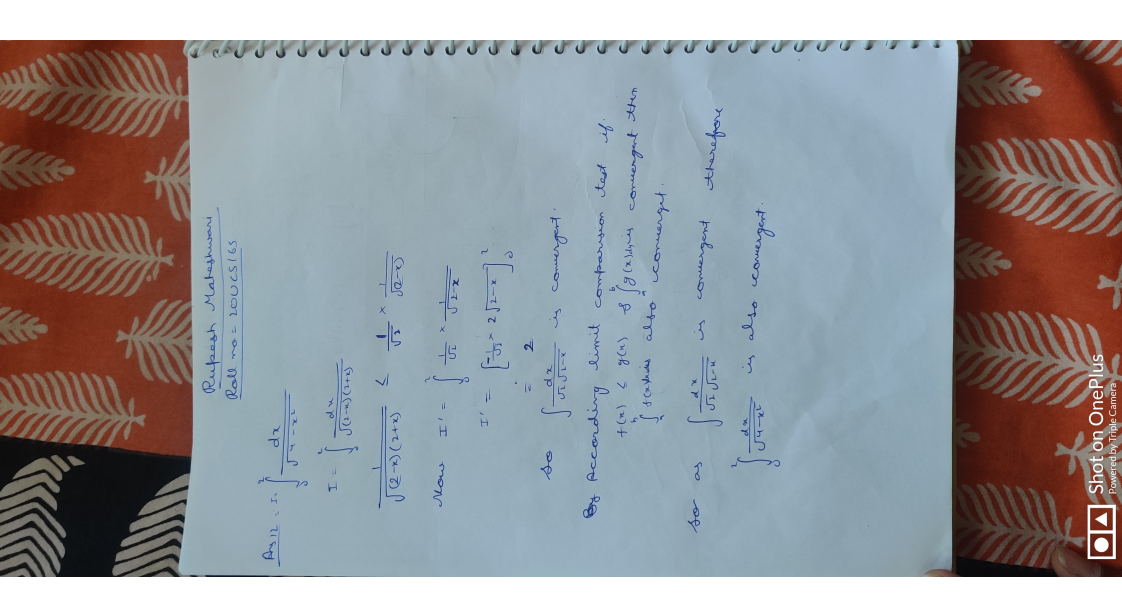 Rupesh Maheshwari
Roll no = 20UCS165
Ans 12 : I = ∫₀² dx/√(4-x²)
I = ∫₀² dx/√((2-x)(2+x))
1/√((2-x)(2+x)) ≤ 1/√2 × 1/√(2-x)
Now I' = ∫₀² 1/√2 × 1/√(2-x)
I' = [-1/√2 × 2√(2-x)]₀²
= 2
so ∫ dx/(√2√(2-x)) is convergent.
By According limit comparision test if
f(x) < g(x) & ∫ₐᵇ g(x)dx is convergent then
∫ₐᵇ f(x)dx is also convergent.
so as ∫ dx/(√2√(2-x)) is convergent therefore
∫₀² dx/√(4-x²) is also convergent.
Shot on OnePlus
Powered by Triple Camera